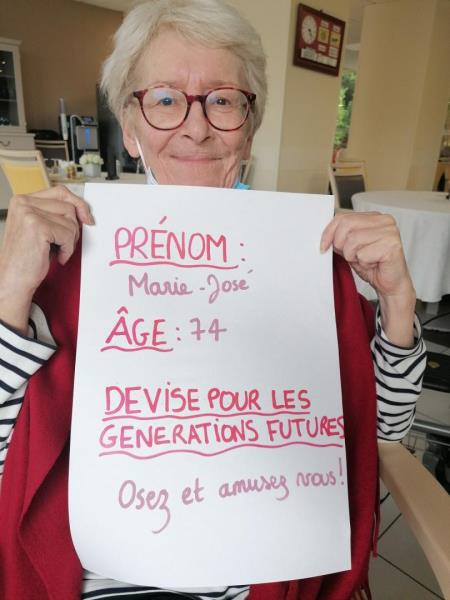 PRÉNOM :
Marie-José
ÂGE : 74
DEVISE POUR LES
GENERATIONS FUTURES
Osez et amusez vous !